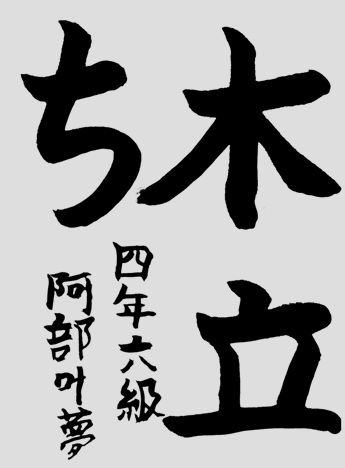 木立
ち
四年六級
阿部叶夢